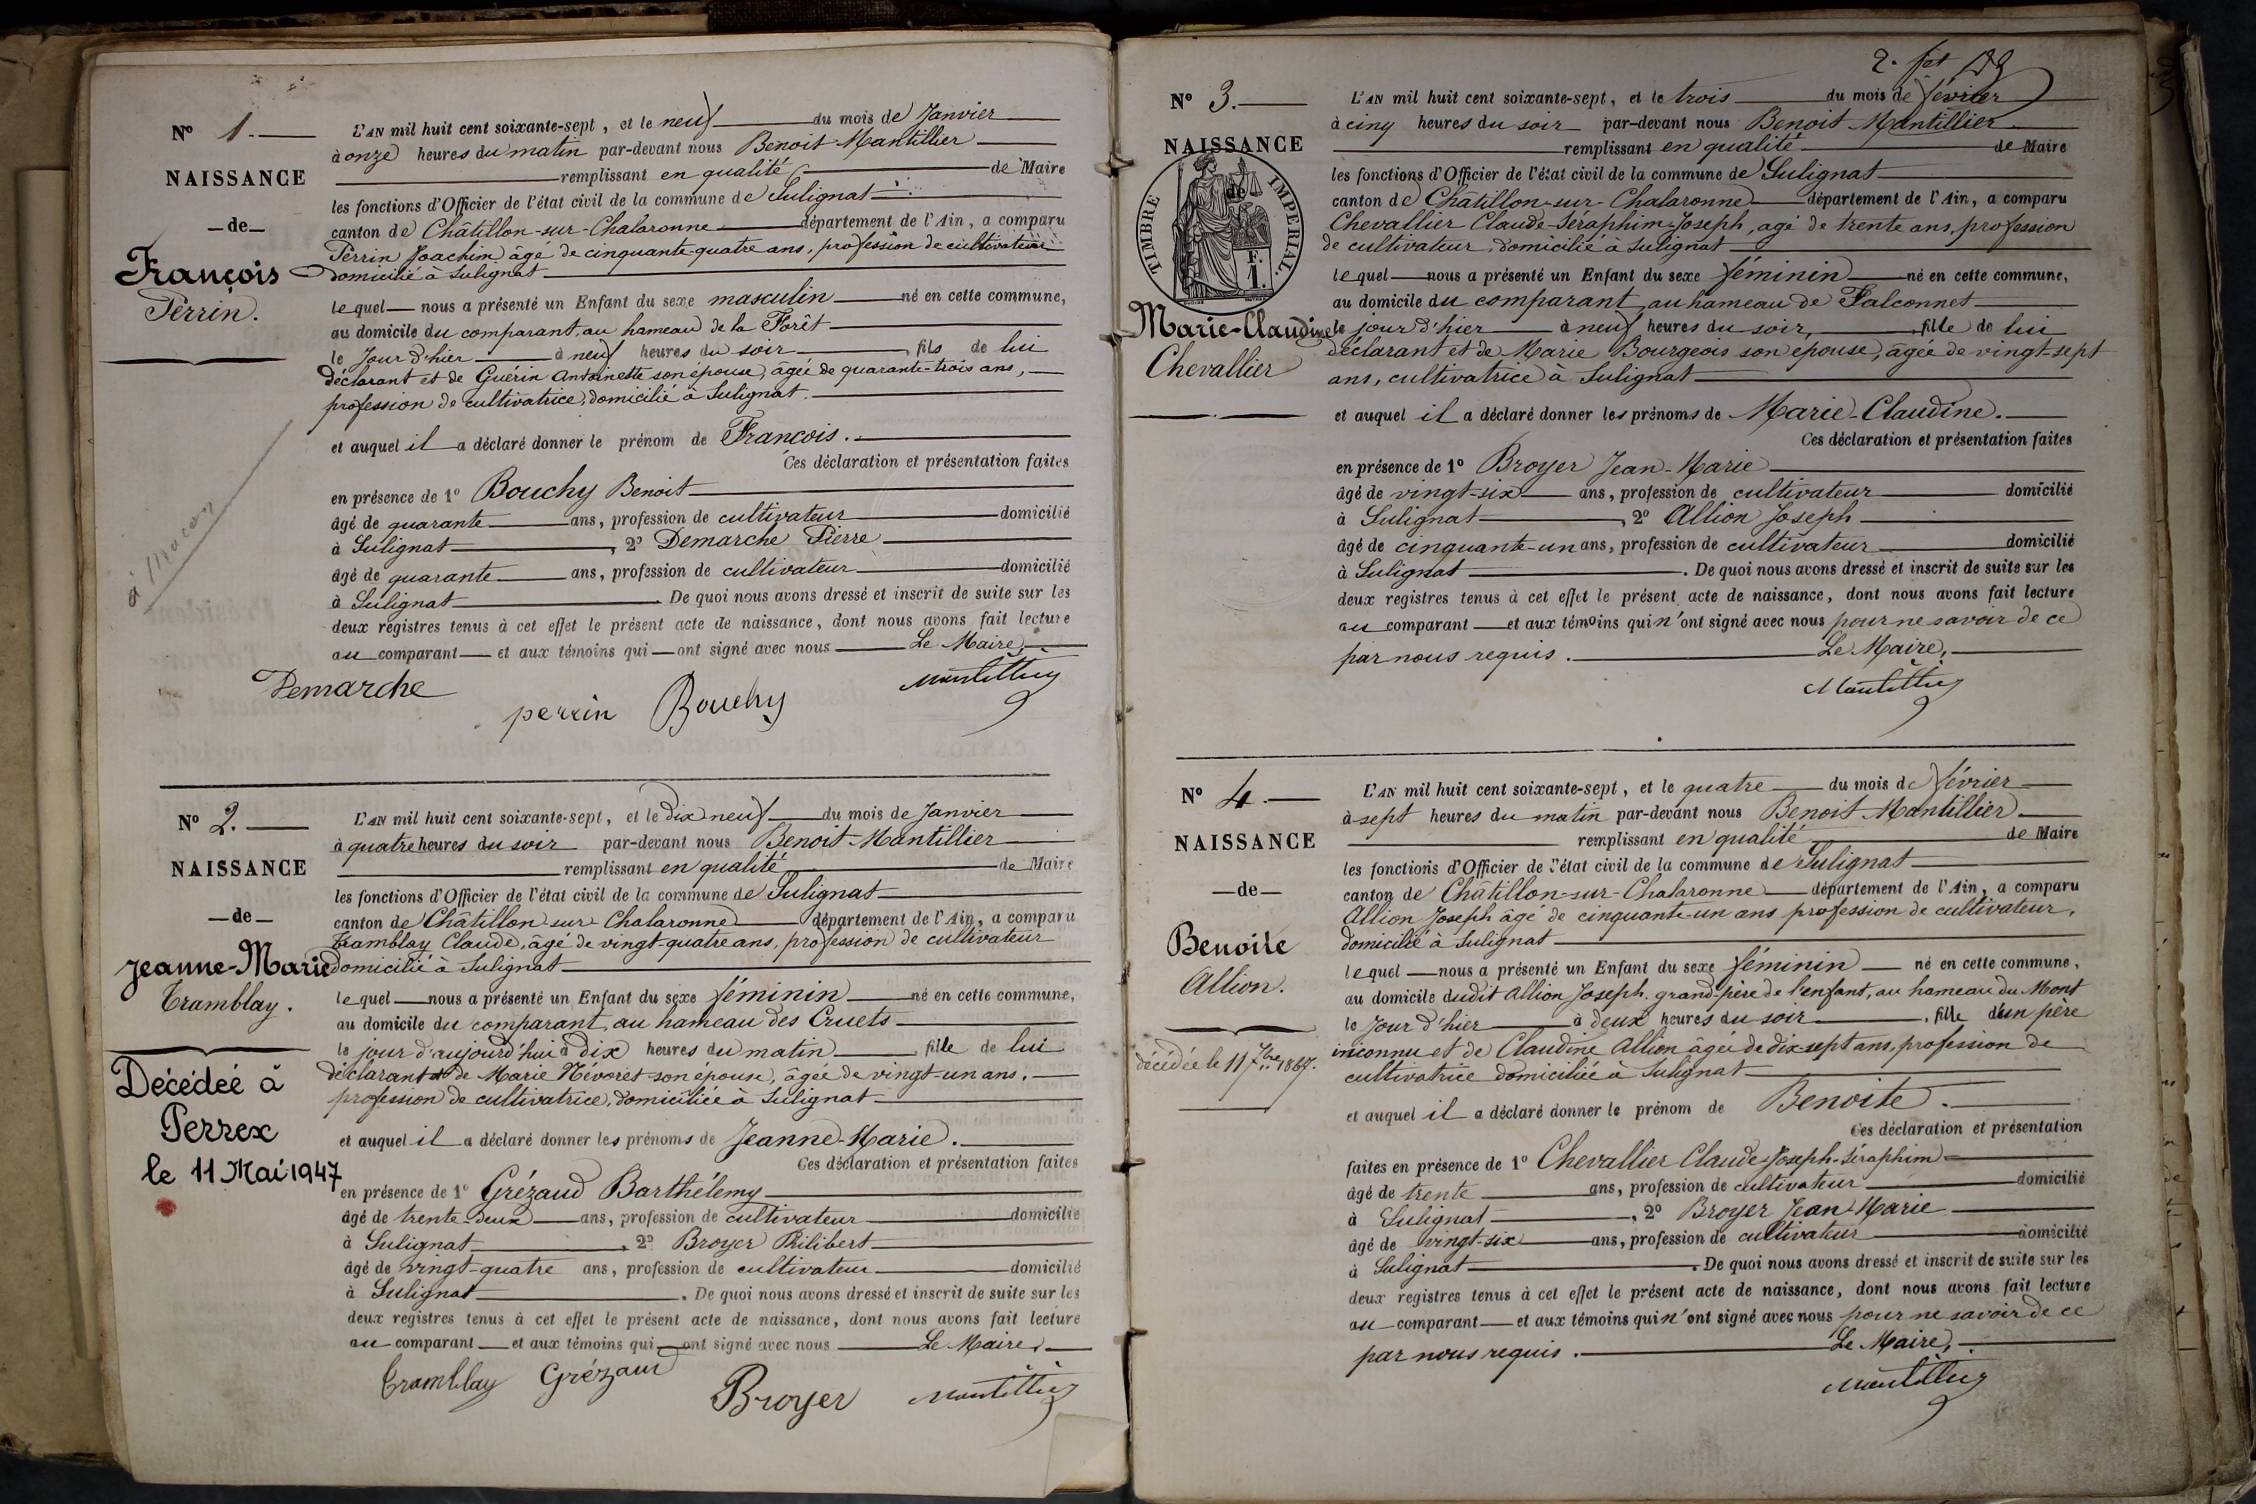 Nº 1.
NAISSANCE
de
François
Perrin.
à Macon
L'AN mil huit cent soixante-sept, et le neuf du mois de Janvier
à onze heures du matin par-devant nous Benoit Mantillier
remplissant en qualité de Maire
les fonctions d'Officier de l'état civil de la commune de Sulignat
canton de Châtillon-sur-Chalaronne département de l'Ain, a comparu
Perrin Joachim âgé de cinquante-quatre ans, profession de cultivateur
domicilié à Sulignat
lequel nous a présenté un Enfant du sexe masculin né en cette commune,
au domicile du comparant, au hameau de la Forêt
le Jour d'hier à neuf heures du soir, fils de lui
déclarant et de Guérin Antoinette son épouse, âgée de quarante-trois ans,
profession de cultivatrice, domicilié à Sulignat.
et auquel il a déclaré donner le prénom de François.
Ces déclaration et présentation faites
en présence de 1º Bouchy Benoit
âgé de quarante ans, profession de cultivateur domicilié
à Sulignat, 2º Demarche Pierre
âgé de quarante ans, profession de cultivateur domicilié
à Sulignat. De quoi nous avons dressé et inscrit de suite sur les
deux registres tenus à cet effet le présent acte de naissance, dont nous avons fait lecture
au comparant et aux témoins qui ont signé avec nous Le Maire,
Demarche perrin Bouchy Mantillier
Nº 2.
NAISSANCE
de
Jeanne-Marie
Tramblay.
Décédeé à
Perrex
le 11 Mai 1947
L'AN mil huit cent soixante-sept, et le Dix neuf du mois de Janvier
à quatre heures du soir par-devant nous Benoit Mantillier
remplissant en qualité de Maire
les fonctions d'Officier de l'état civil de la commune de Sulignat
canton de Châtillon sur Chalaronne département de l'Ain, a comparu
Tramblay Claude, âgé de vingt-quatre ans, profession de cultivateur
domicilié à Sulignat
lequel nous a présenté un Enfant du sexe féminin né en cette commune,
au domicile du comparant, au hameau des Cruets
le jour d'aujourd'hui à dix heures du matin, fille de lui
déclarant et de Marie Névoret son épouse, âgée de vingt-un ans,
profession de cultivatrice, domiciliée à Sulignat
et auquel il a déclaré donner les prénoms de Jeanne-Marie.
Ces déclaration et présentation faites
en présence de 1º Grézaud Barthélemy
âgé de trente-deux ans, profession de cultivateur domicilié
à Sulignat, 2º Broyer Philibert
âgé de vingt-quatre ans, profession de cultivateur domicilié
à Sulignat. De quoi nous avons dressé et inscrit de suite sur les
deux registres tenus à cet effet le présent acte de naissance, dont nous avons fait lecture
au comparant et aux témoins qui ont signé avec nous Le Maire,
Tramblay Grézaud Broyer Mantillier
Nº 3.
NAISSANCE
de
TIMBRE IMPERIAL.
F.
1.
Marie-Claudine
Chevallier
L'AN mil huit cent soixante-sept, et le trois du mois de février
à cinq heures du soir par-devant nous Benoit Mantillier
remplissant en qualité de Maire
les fonctions d'Officier de l'état civil de la commune de Sulignat
canton de Châtillon-sur-Chalaronne département de l'Ain, a comparu
Chevallier Claude-Séraphim-Joseph, agé de trente ans, profession
de cultivateur, domicilié à Sulignat
lequel nous a présenté un Enfant du sexe féminin né en cette commune,
au domicile du comparant, au hameau de Falconnet
le jour d'hier à neuf heures du soir, fille de lui
déclarant et de Marie Bourgeois son épouse, âgée de vingt-sept
ans, cultivatrice à Sulignat
et auquel il a déclaré donner les prénoms de Marie-Claudine.
Ces déclaration et présentation faites
en présence de 1º Broyer Jean-Marie
âgé de vingt-six ans, profession de cultivateur domicilié
à Sulignat, 2º Allion Joseph
âgé de cinquante-un ans, profession de cultivateur domicilié
à Sulignat. De quoi nous avons dressé et inscrit de suite sur les
deux registres tenus à cet effet le présent acte de naissance, dont nous avons fait lecture
au comparant et aux témoins qui n'ont signé avec nous pour ne savoir de ce
par nous requis. Le Maire,
Mantillier
Nº 4.
NAISSANCE
de
Benoite
Allion.
décédée le 11 7bre 1867.
L'AN mil huit cent soixante-sept, et le quatre du mois de février
à sept heures du matin par-devant nous Benoit Mantillier
remplissant en qualité de Maire
les fonctions d'Officier de l'état civil de la commune de Sulignat
canton de Châtillon-sur-Chalaronne département de l'Ain, a comparu
Allion Joseph âgé de cinquante-un ans profession de cultivateur,
domicilié à Sulignat
lequel nous a présenté un Enfant du sexe féminin né en cette commune,
au domicile dudit Allion Joseph, grand-père de l'enfant, au hameau du Mont
le Jour d'hier à deux heures du soir, fille d'un père
inconnu et de Claudine Allion âgée de dix-sept ans, profession de
cultivatrice domiciliée à Sulignat
et auquel il a déclaré donner le prénom de Benoite.
Ces déclaration et présentation
faites en présence de 1º Chevallier Claude-Joseph-Séraphim
âgé de trente ans, profession de cultivateur domicilié
à Sulignat, 2º Broyer Jean-Marie
âgé de vingt-six ans, profession de cultivateur domicilié
à Sulignat. De quoi nous avons dressé et inscrit de suite sur les
deux registres tenus à cet effet le présent acte de naissance, dont nous avons fait lecture
au comparant et aux témoins qui n'ont signé avec nous pour ne savoir de ce
par nous requis. Le Maire,
Mantillier